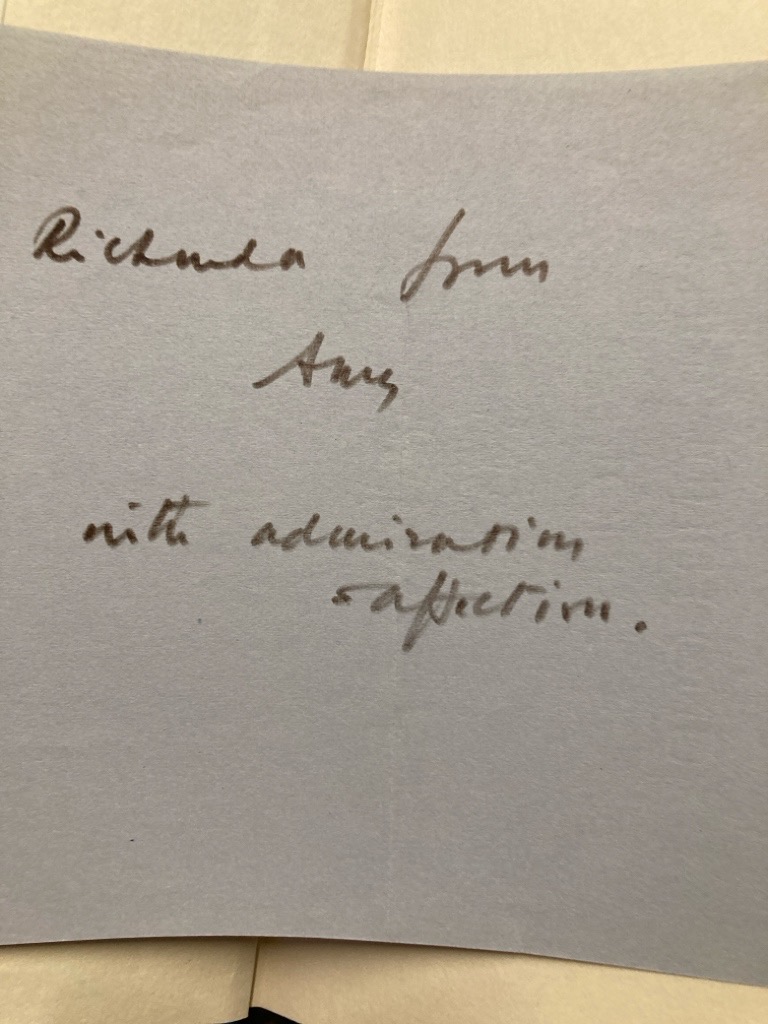 Richenda from
Amy
with admiration
& affection.